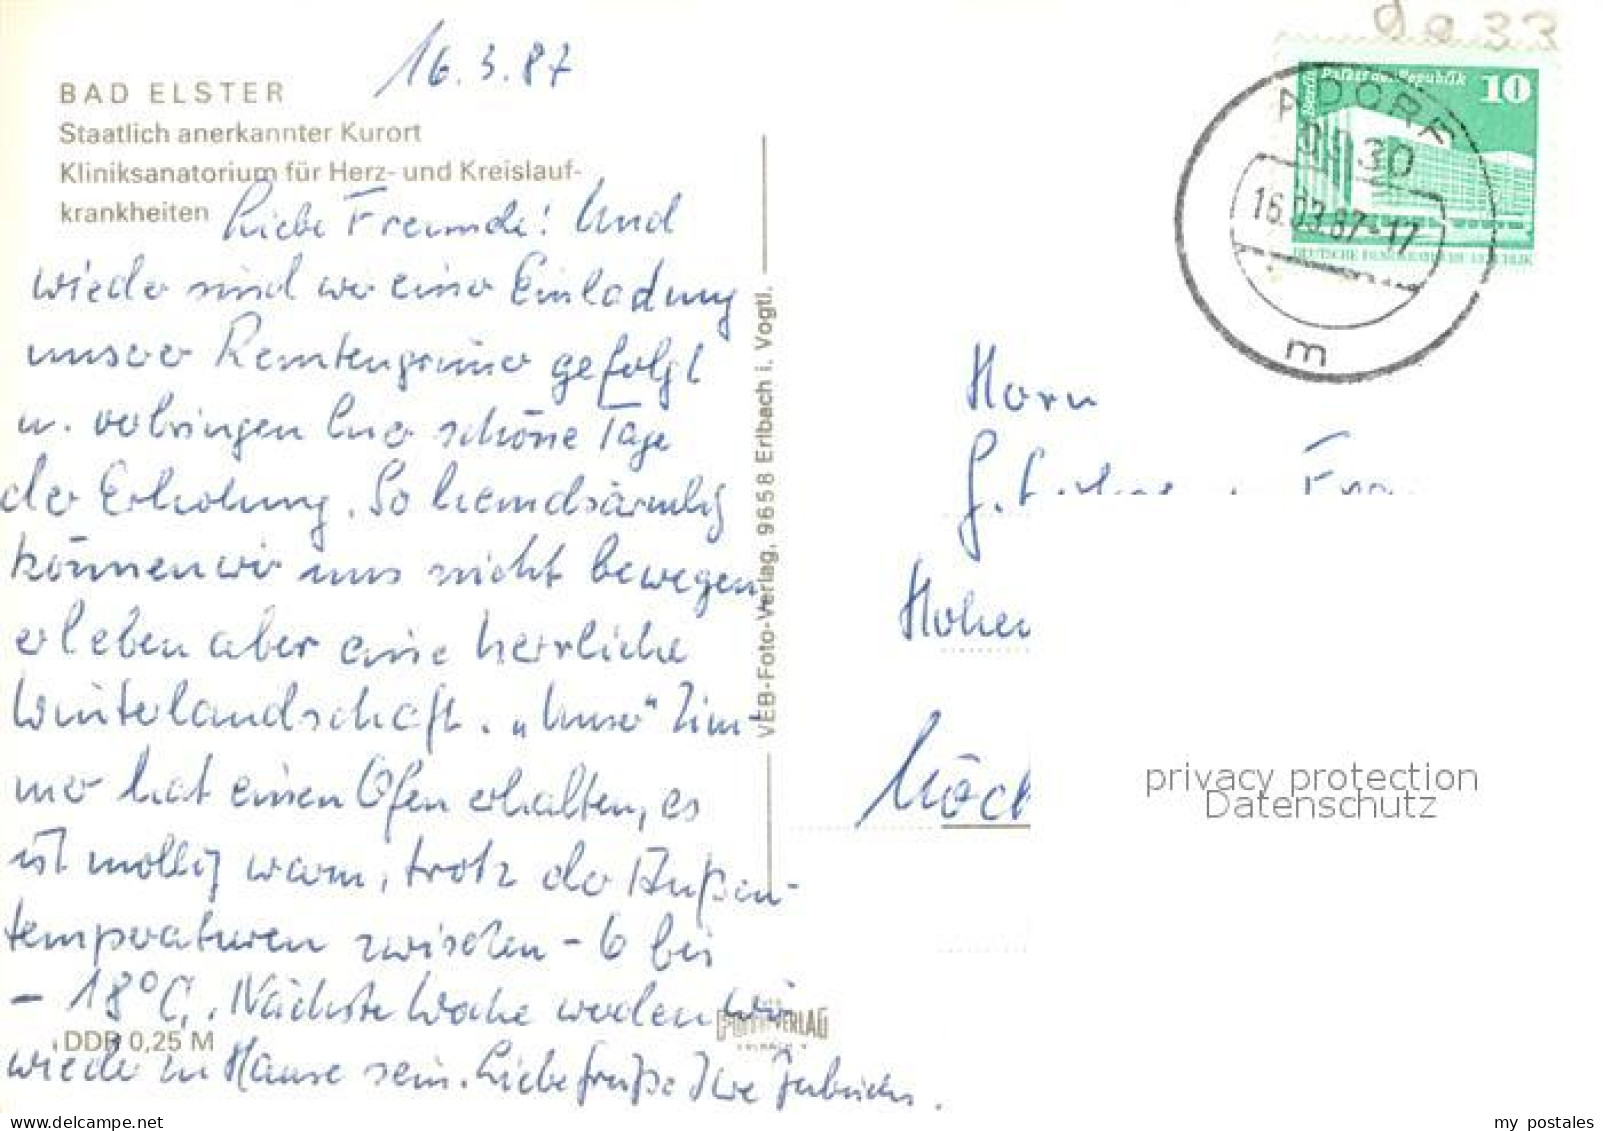 16.3.87
BAD ELSTER
Staatlich anerkannter Kurort
Kliniksanatorium für Herz- und Kreislauf-
krankheiten
Liebe Freunde! Und
wieder sind wir einer Einladung
unserer Rentengönner gefolgt
u. verbringen hier schöne Tage
der Erholung. So hemdsärmlig
können wir uns nicht bewegen,
erleben aber eine herrliche
Winterlandschaft. „Unser“ Zim-
mer hat einen Ofen erhalten, es
ist mollig warm, trotz der Außen-
temperaturen zwischen - 6 bis
- 18°C. Nächste Woche werden wir
wieder zu Hause sein. Liebe Grüße Ihre
DDR 0,25 M
VEB-Foto-Verlag, 9658 Erlbach i. Vogtl.
FOTO-VERLAG
9933
Berlin Palast der Republik 10
DEUTSCHE DEMOKRATISCHE REPUBLIK
ADORF
9930
16.03.87-17
m
Herrn
G.
Hohen
Möck
privacy protection
Datenschutz
my postales